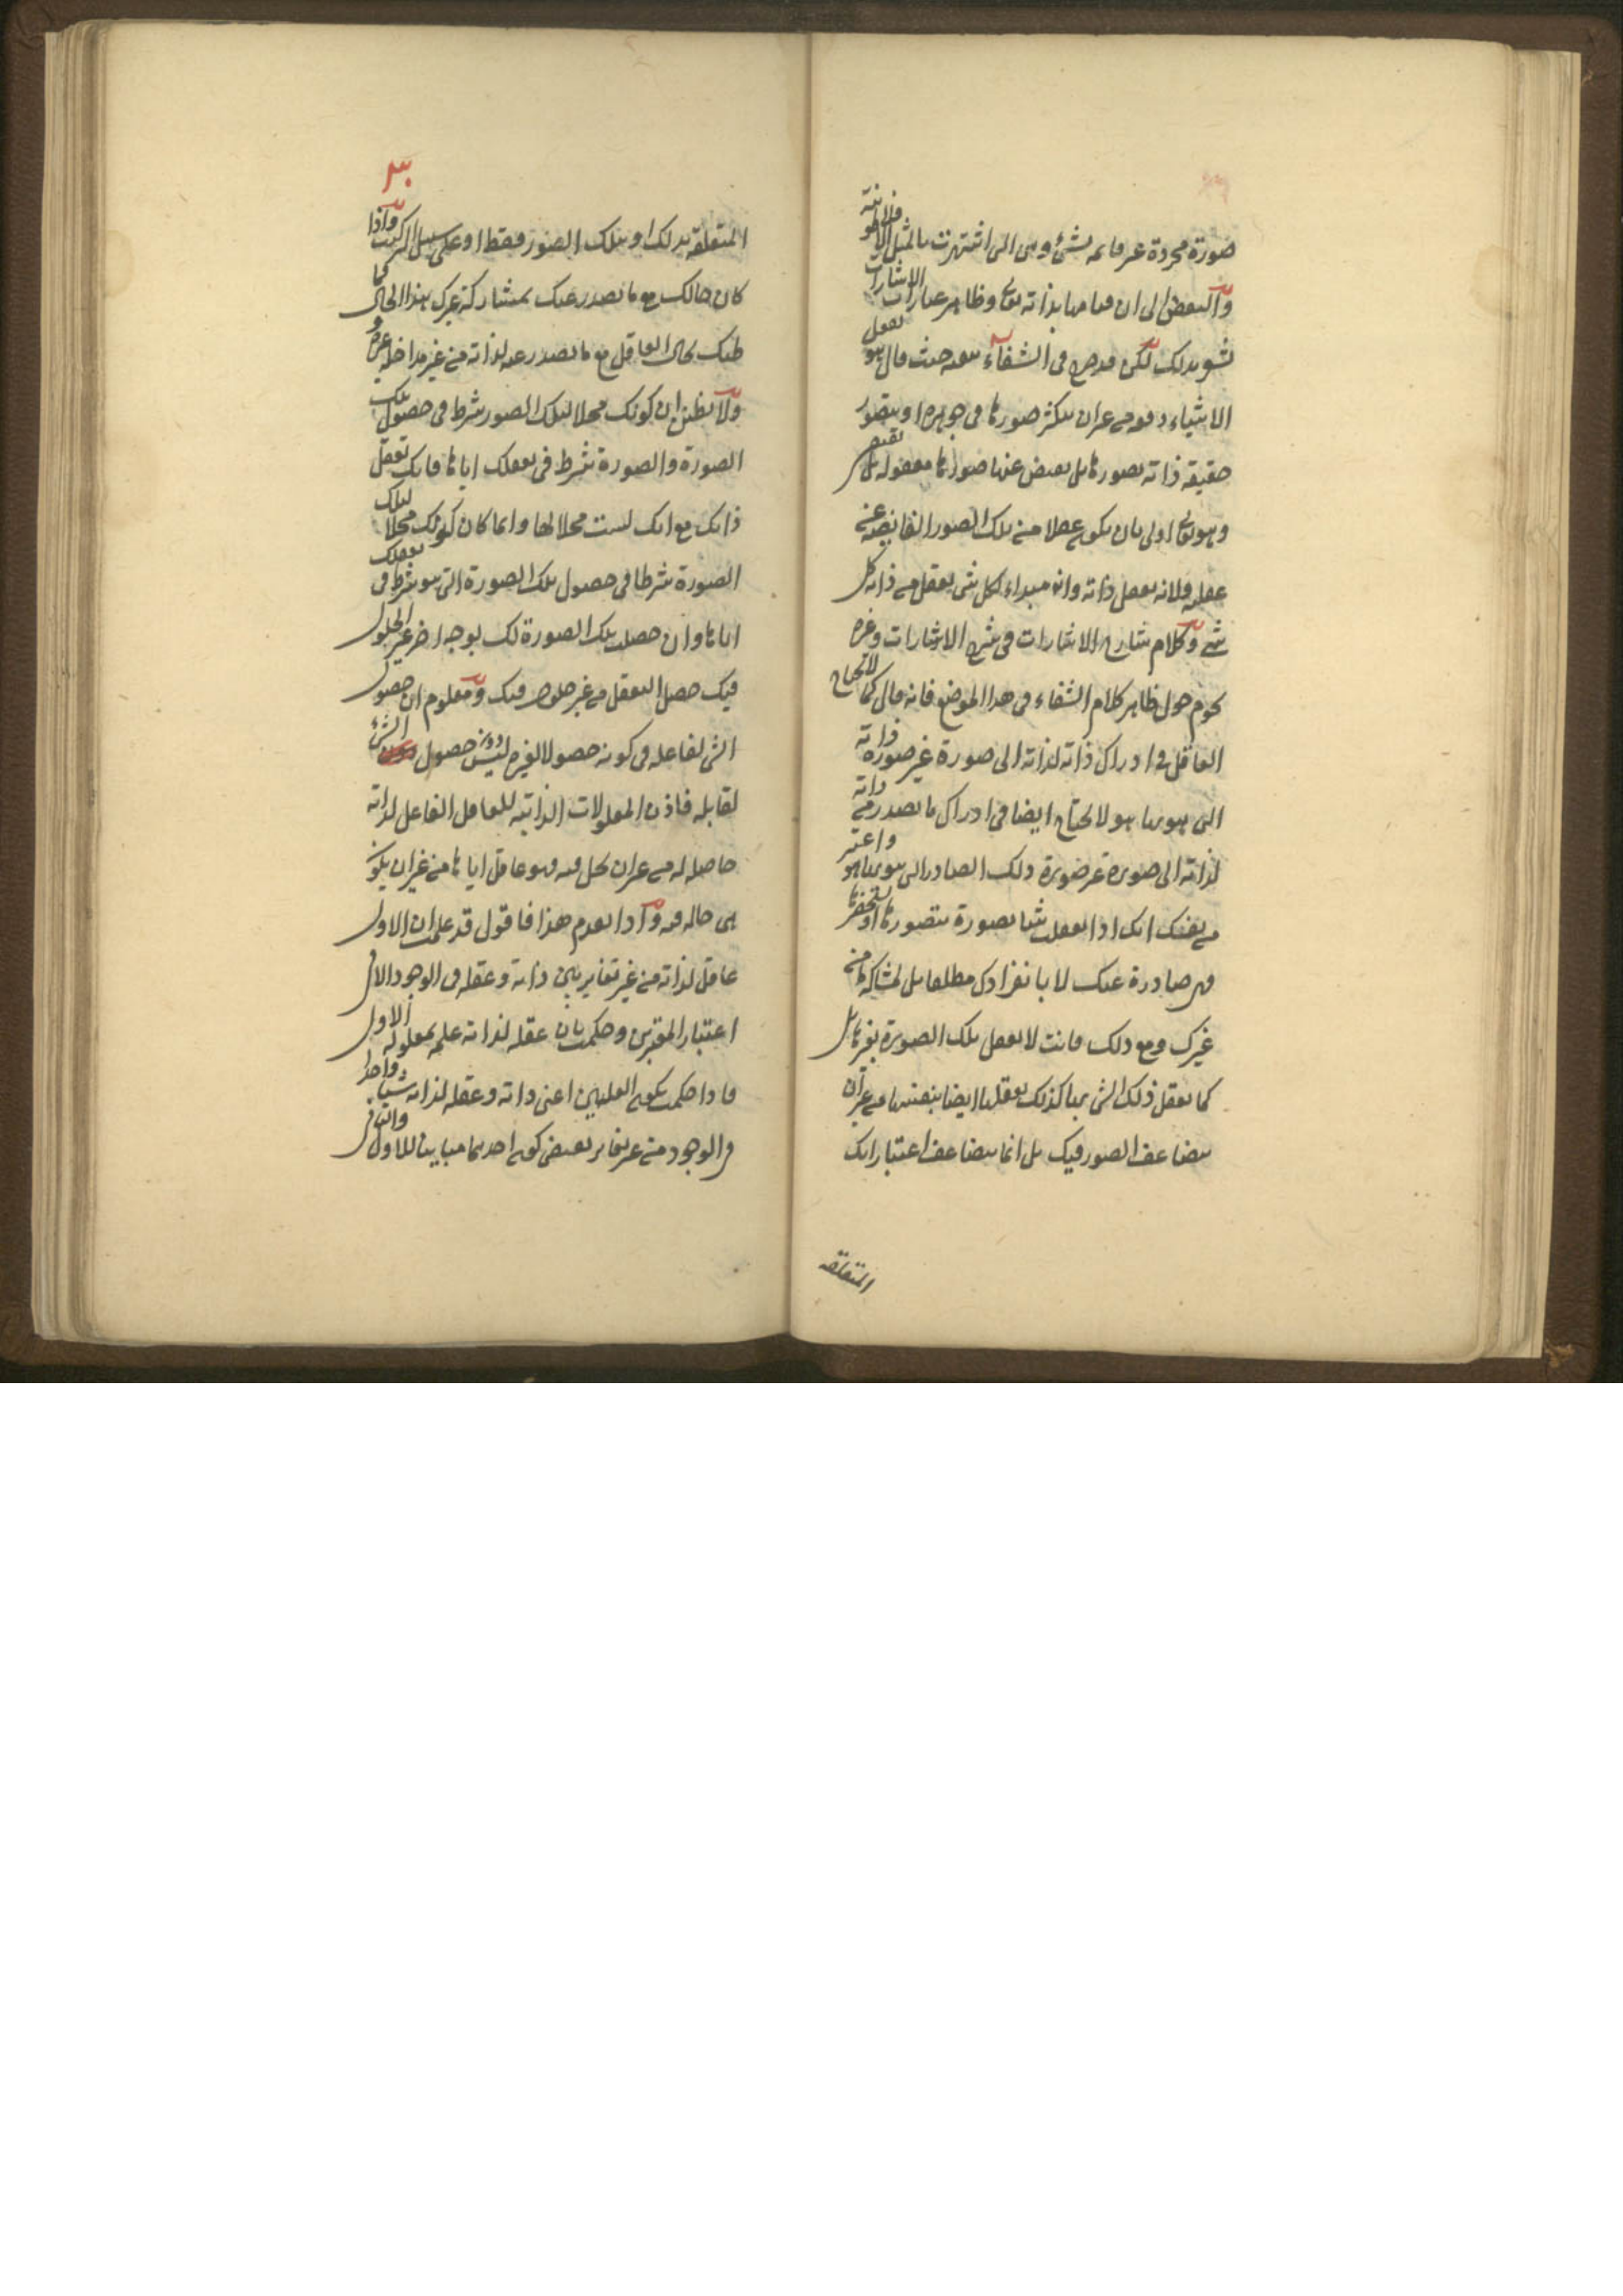 صورة مجردة غير قائمة بشئ وهى التى اشتهرت بالمثل الافلاطونية
والبعض الى ان قيامها بذاته تعالى وظاهر عبارات الاشارات
يشعر بذلك لكن قد صرح فى الشفاء بنفيه حيث قال هو يعقل
الاشياء دفعة من غير ان يتكثر صورها فى جوهره او يتصور
حقيقة ذاته بصورها بل يفيض عنها صورها معقولة بل يفيض
وهو تعالى اولى بان يكون عقلا من تلك الصور الفائضة عن
عقليته ولانه يعقل ذاته وانه مبداء لكل شئ يعقل من ذاته كل
شئ وكلام شارح الاشارات فى شرح الاشارات وغيره
يحوم حول ظاهر كلام الشفاء فى هذا الموضع فانه قال كما لا يحتاج
العاقل فى ادراك ذاته لذاته الى صورة غير صورة ذاته
التى بها هو هو لا يحتاج ايضا فى ادراك ما يصدر من ذاته
لذاته الى صورة غير صورة ذلك الصادر التى بها هو هو واعتبر
من نفسك انك اذا تعقلت شيئا بصورة تتصورها او تستحضرها
فهى صادرة عنك لا بانفرادك مطلقا بل بمشاركة ما من
غيرك ومع ذلك فانت لا تعقل تلك الصورة بغيرها بل
كما تعقل ذلك الشئ بها كذلك تعقلها ايضا بنفسها من غير ان
يتضاعف الصور فيك بل انما يتضاعف اعتباراتك
المتعلقة
٣٠
المتعلقة بذلك او بتلك الصور فقط او على سبيل التركيب واذا
كان حالك مع ما يصدر عنك بمشاركة غيرك بهذا الحال فما
ظنك بحال العاقل مع ما يصدر عنه لذاته من غير مداخلة غيره
ولا تظنن ان كونك محلا لتلك الصور شرط فى حصول تلك
الصورة والصورة شرط فى تعقلك اياها فانك تعقل
ذاتك مع انك لست محلا لها وانما كان كونك محلا لتلك
الصورة شرطا فى حصول تلك الصورة التى هو شرط فى تعقلك
اياها وان حصلت تلك الصورة لك بوجه اخر غير الحلول
فيك حصل التعقل من غير حلول فيك ومعلوم ان حصول
الشئ لفاعله فى كونه حصولا لغيره ليس دون حصول الشئ
لقابله فاذن المعلولات الذاتية للعاقل الفاعل لذاته
حاصلة له من غير ان يحل فيه فهو عاقل اياها من غير ان يكون
هى حالة فيه واذا تقدم هذا فاقول قد علمت ان الاول
عاقل لذاته من غير تغاير بين ذاته وعقله فى الوجود الا فى
اعتبار المعتبرين وحكمت بان عقله لذاته علة لمعلوله الاول
فاذا حكمت بكون العلتين اعنى ذاته وعقله لذاته شيئا واحدا
فى الوجود من غير تغاير يقتضى كون احدهما مباينا للاول والثانى